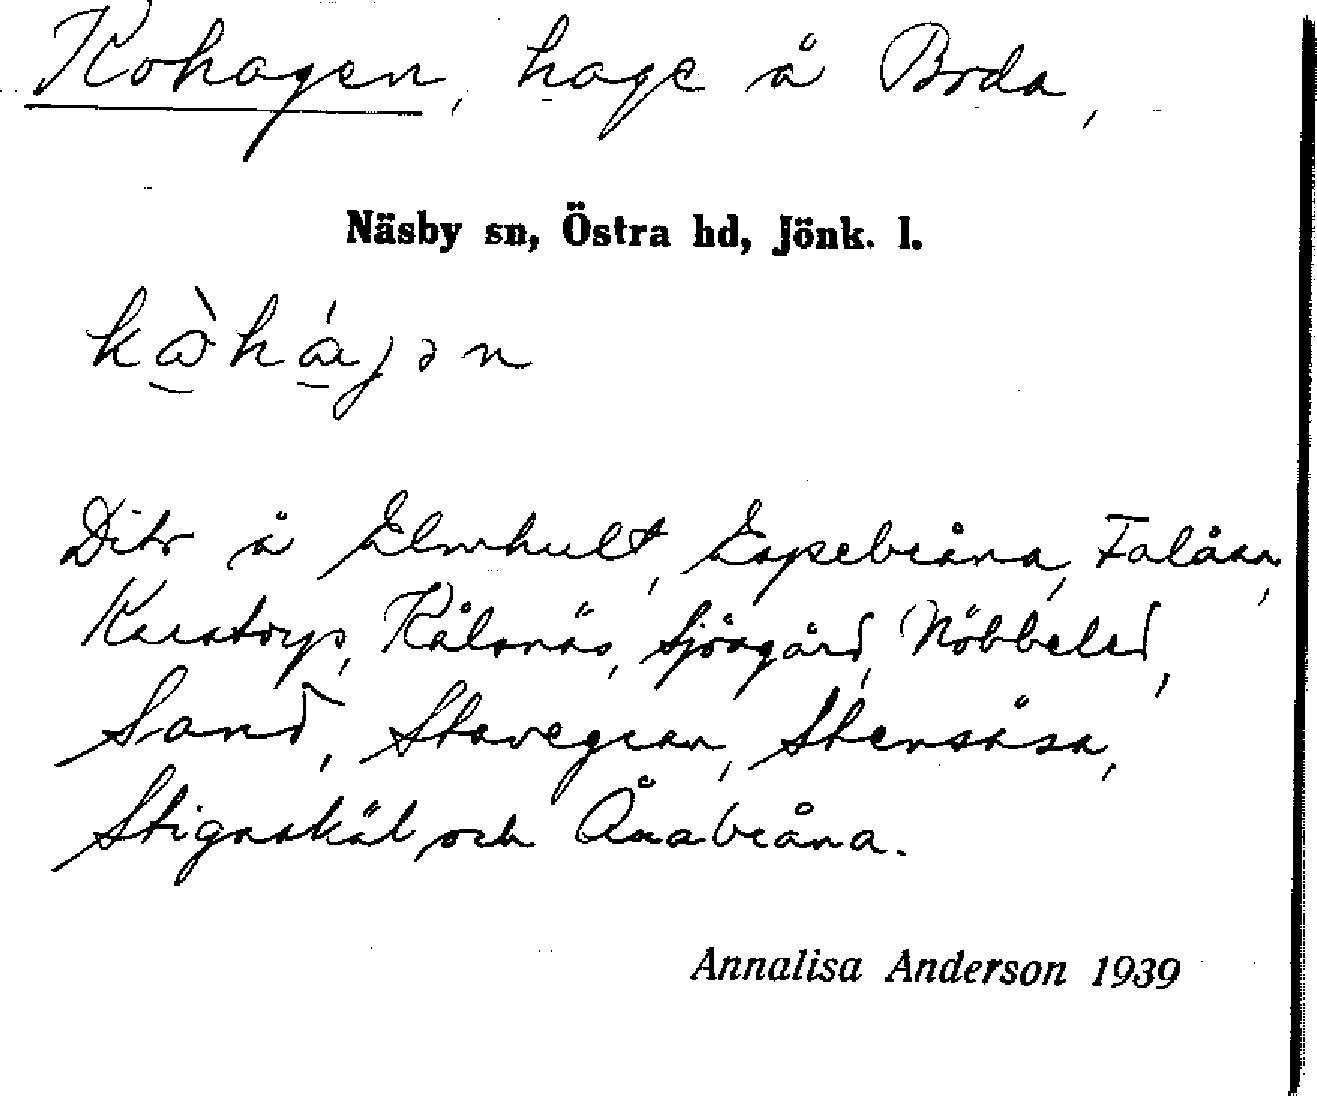 Kohagen, hage å Boda,
Näsby sn, Östra hd, Jönk. l.
Dito å Elmhult, Espebråna, Falåsa,
Karstorp, Kålsnäs, Sjögård, Nöbbeled,
Sand, Stavegran, Stensåsa,
Stignskäl och Åsabråna.
Annalisa Anderson 1939